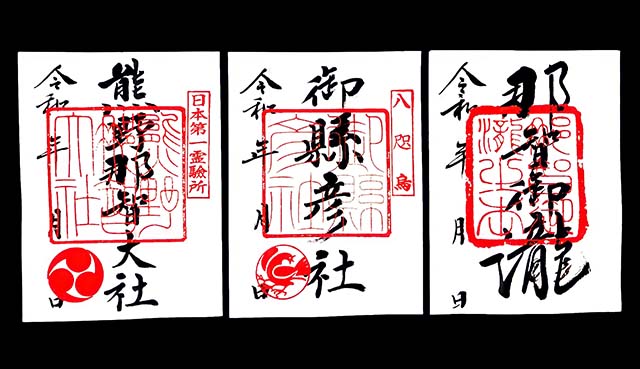 日本第一霊験所
熊野那智大社
令和 年 月 日
八咫烏
御縣彦社
令和 年 月 日
那智御瀧
令和 年 月 日